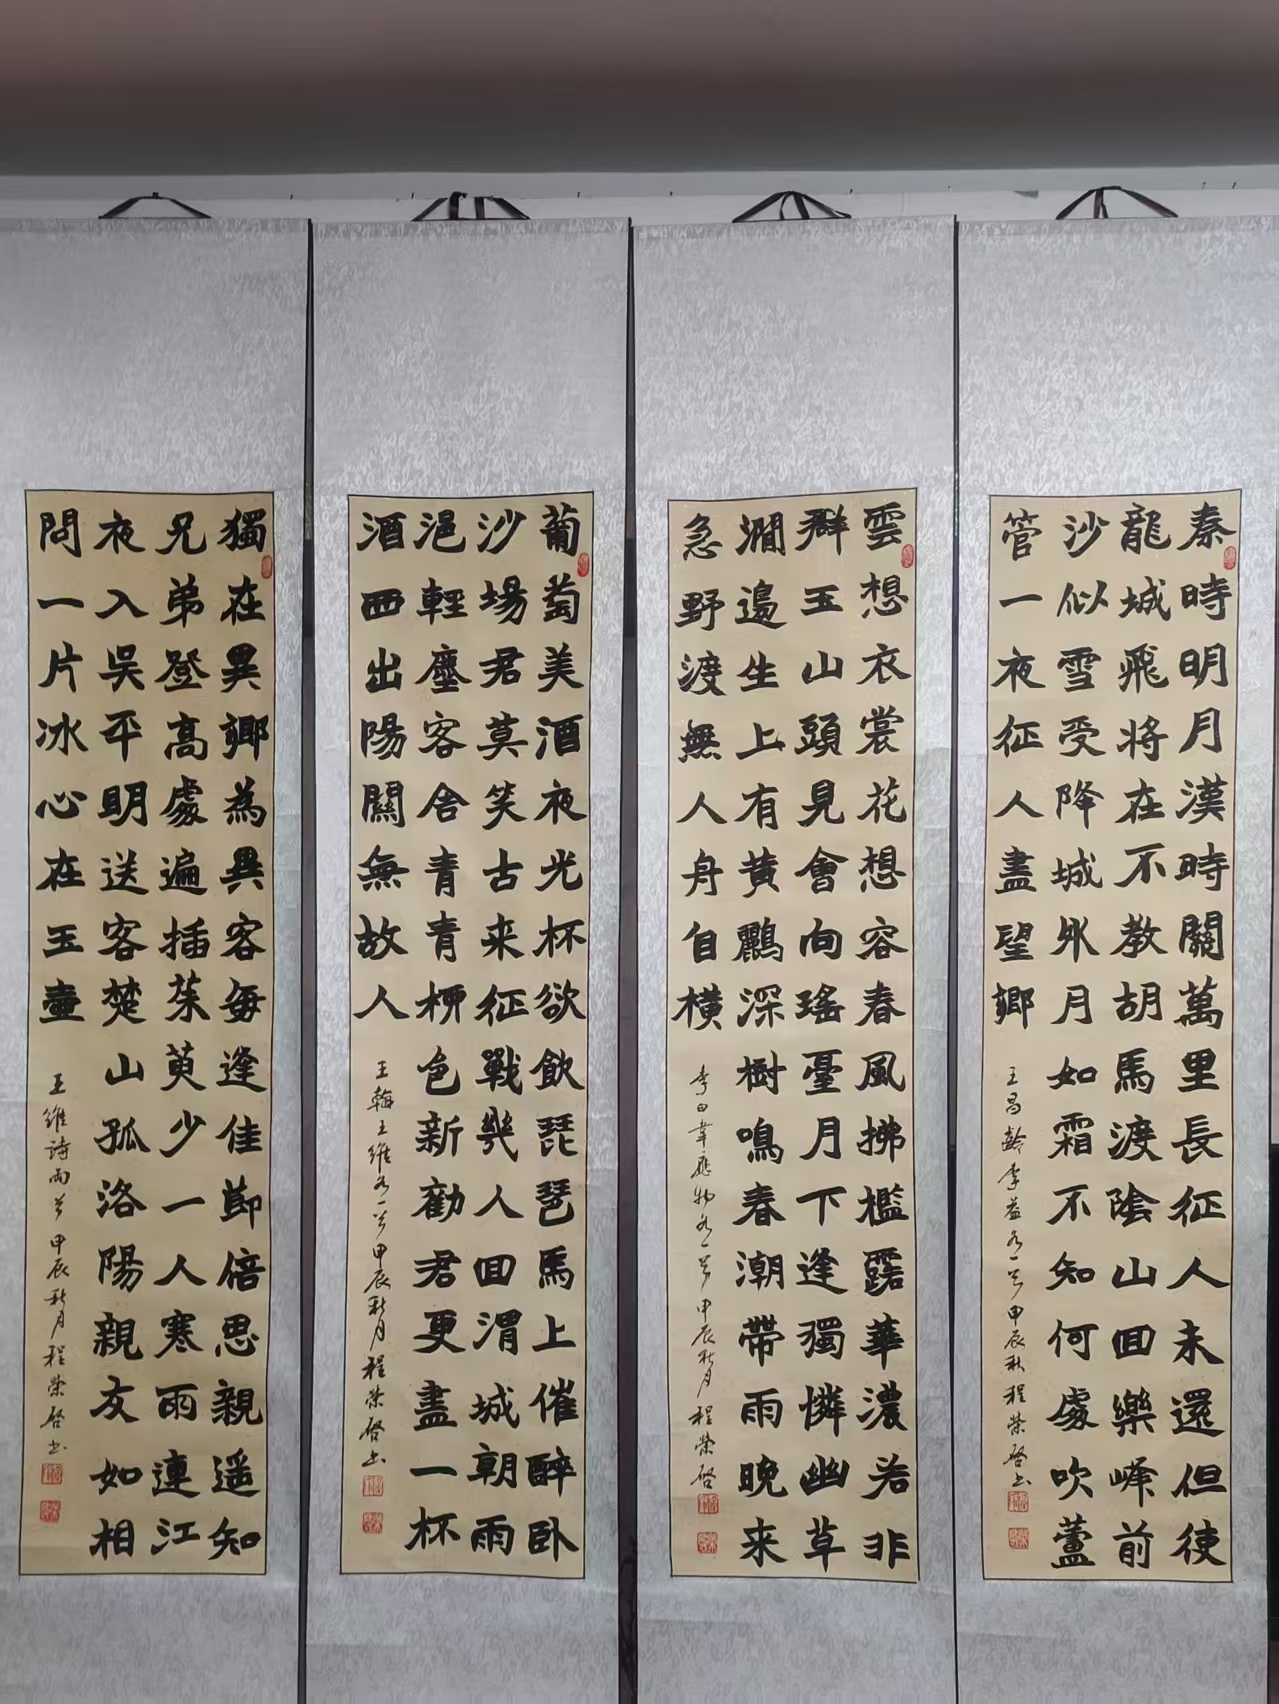 秦時明月漢時關萬里長征人未還但使
龍城飛将在不教胡馬渡陰山回樂峰前
沙似雪受降城外月如霜不知何處吹蘆
管一夜征人盡望鄉
王昌齡李益各一首甲辰秋程榮啓书
雲想衣裳花想容春風拂檻露華濃若非
群玉山頭見會向瑤臺月下逢獨憐幽草
澗邊生上有黄鸝深樹鳴春潮帶雨晚来
急野渡無人舟自横
李白韋應物各一首甲辰秋月程榮啓
葡萄美酒夜光杯欲飲琵琶馬上催醉卧
沙場君莫笑古来征戰幾人回渭城朝雨
浥輕塵客舍青青柳色新勸君更盡一杯
酒西出陽關無故人
王翰王維各一首甲辰秋月程榮啓书
獨在異鄉為異客每逢佳節倍思親遥知
兄弟登高處遍插茱萸少一人寒雨連江
夜入吴平明送客楚山孤洛陽親友如相
問一片冰心在玉壺
王維詩两首甲辰秋月程榮啓书